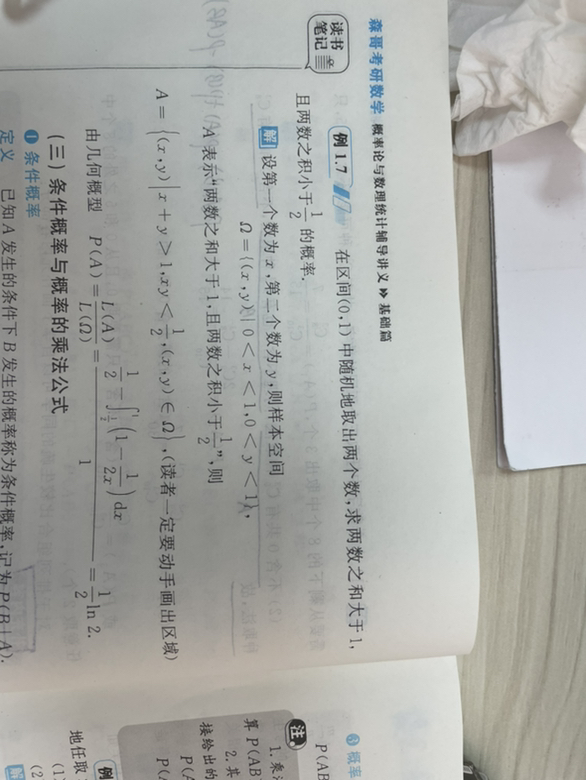 森哥考研数学 概率论与数理统计辅导讲义 基础篇
读书
笔记
例 1.7 在区间(0,1)中随机地取出两个数,求两数之和大于1,
且两数之积小于1/2的概率.
解 设第一个数为x,第二个数为y,则样本空间
Ω={(x,y)|0<x<1,0<y<1},
A表示“两数之和大于1,且两数之积小于1/2”,则
A={(x,y)|x+y>1,xy<1/2,(x,y)∈Ω},(读者一定要动手画出区域)
由几何概型 P(A)=L(A)/L(Ω)=(1/2-∫_{1/2}^{1}(1-1/2x)dx)/1=1/2 ln 2.
(三)条件概率与概率的乘法公式
❶ 条件概率
定义 已知A发生的条件下B发生的概率称为条件概率,记为P(B|A).
❻ 概率
P(AB
注
1. 乘
算 P(AB
2. 其
接给出的
P(A
P(A
例
地任取
(1)
(2)
解